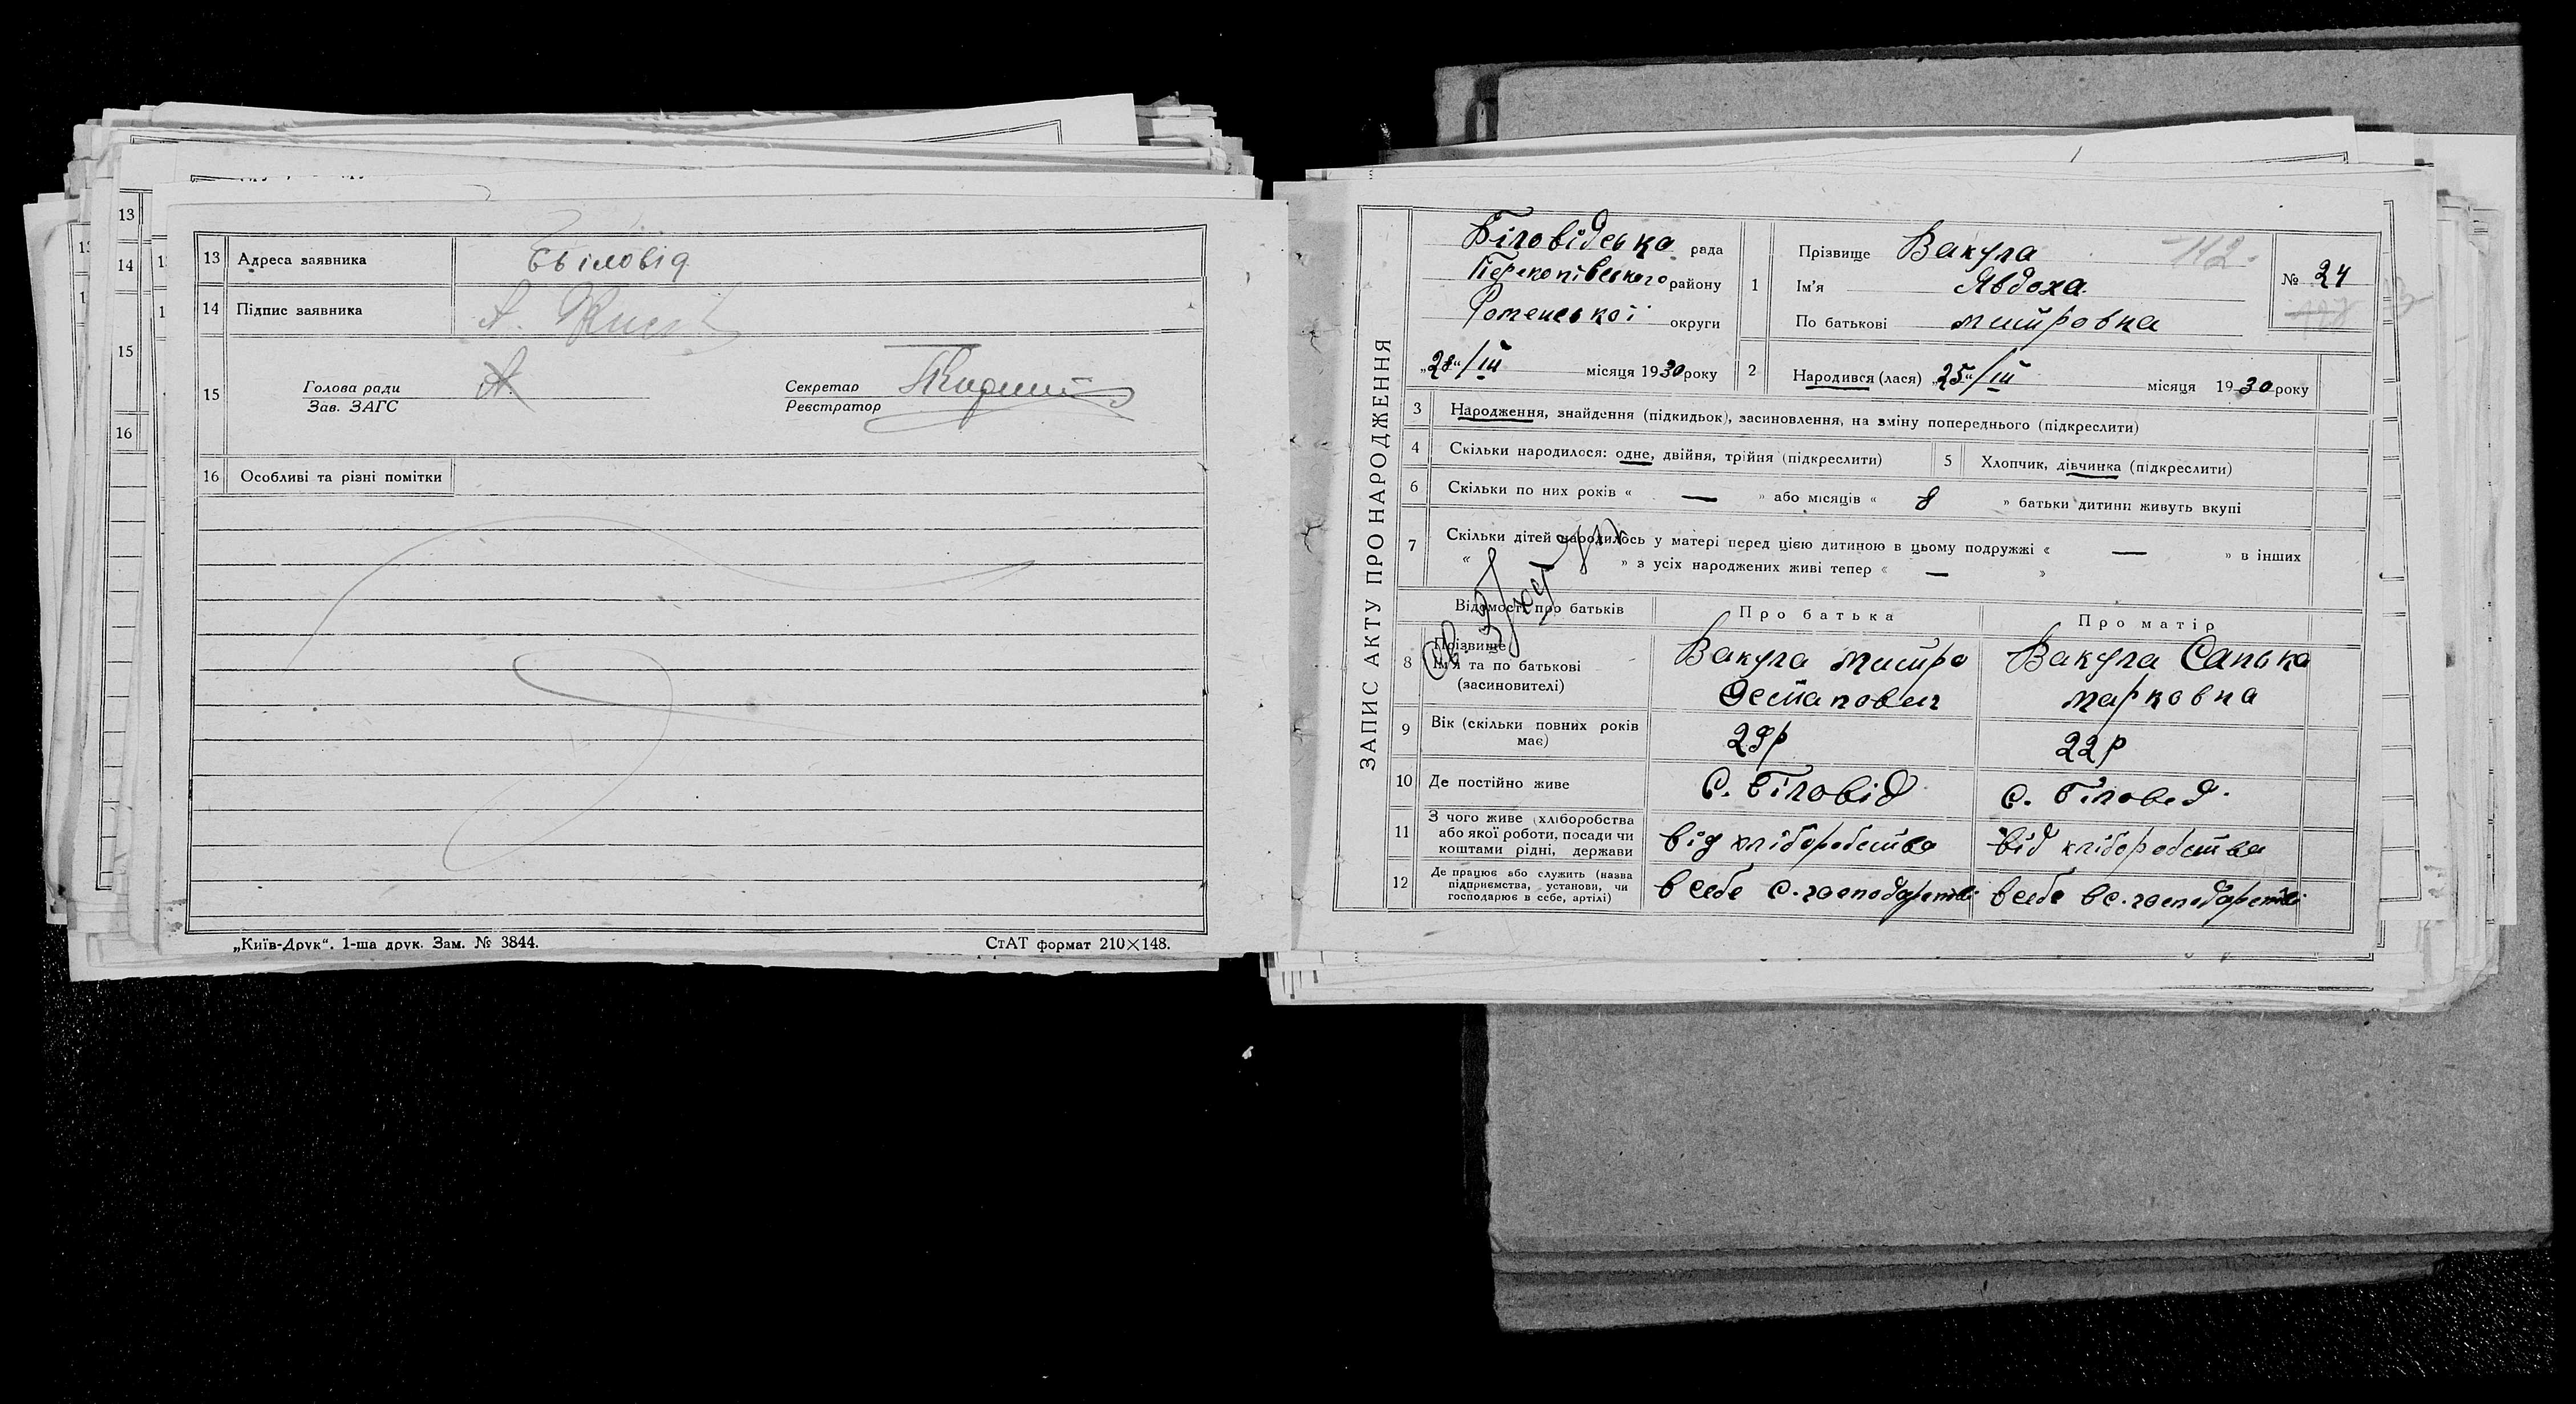 13 Адреса заявника Бьіловід
14 Підпис заявника А.
15 Голова ради Секретар
Зав. ЗАГС Реєстратор
16 Особливі та різні помітки
„Київ-Друк“. 1-ша друк. Зам. № 3844. СтАТ формат 210×148.
13
14
15
16
ЗАПИС АКТУ ПРО НАРОДЖЕННЯ
Біловідська рада
Перекопівського району
Роменської округи
„28“/III місяця 1930 року
1 Прізвище Вакула 142.
Ім'я Явдоха
По батькові митровна
№ 24
2 Народився (лася) „25“/III місяця 1930 року
3 Народження, знайдення (підкидьок), засиновлення, на зміну попереднього (підкреслити)
4 Скільки народилося: одне, двійня, трійня (підкреслити) 5 Хлопчик, дівчинка (підкреслити)
6 Скільки по них років « — » або місяців « 8 » батьки дитини живуть вкупі
7 Скільки дітей народилось у матері перед цією дитиною в цьому подружжі « — » в інших
« » з усіх народжених живі тепер « — »
Відомості про батьків Про батька Про матір
8 Прізвище
Ім'я та по батькові
(засиновителі)
Вакула митро
Остапович
Вакула Санька
марковна
9 Вік (скільки повних років
має)
29р 22р
10 Де постійно живе С. Біловід с. Біловед.
11 З чого живе (хліборобства
або якої роботи, посади чи
коштами рідні, держави
від хліборобства від хліборобства
12 Де працює або служить (назва
підприємства, установи, чи
господарює в себе, артілі)
в себе с.-господарстві в себе в с.-господарстві